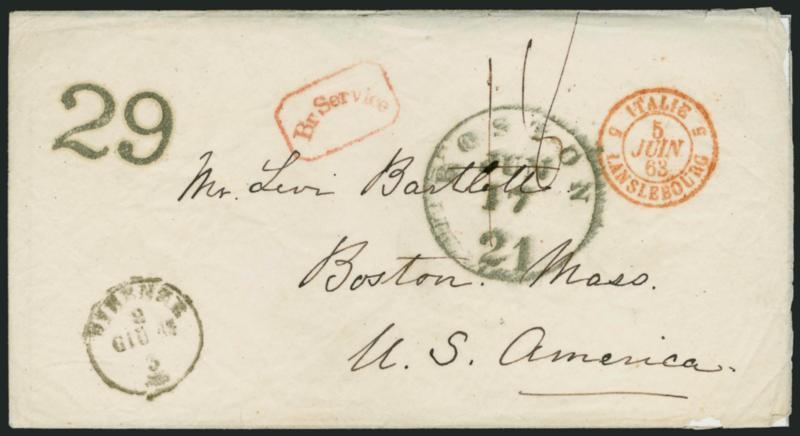 29
Br Service
BOSTON
JUN
17
21
ITALIE
5 5
5
JUIN
63
LANSLEBOURG
Mr. Levi Bartlett.
Boston. Mass.
U. S. America.
FIRENZE
3
GIU